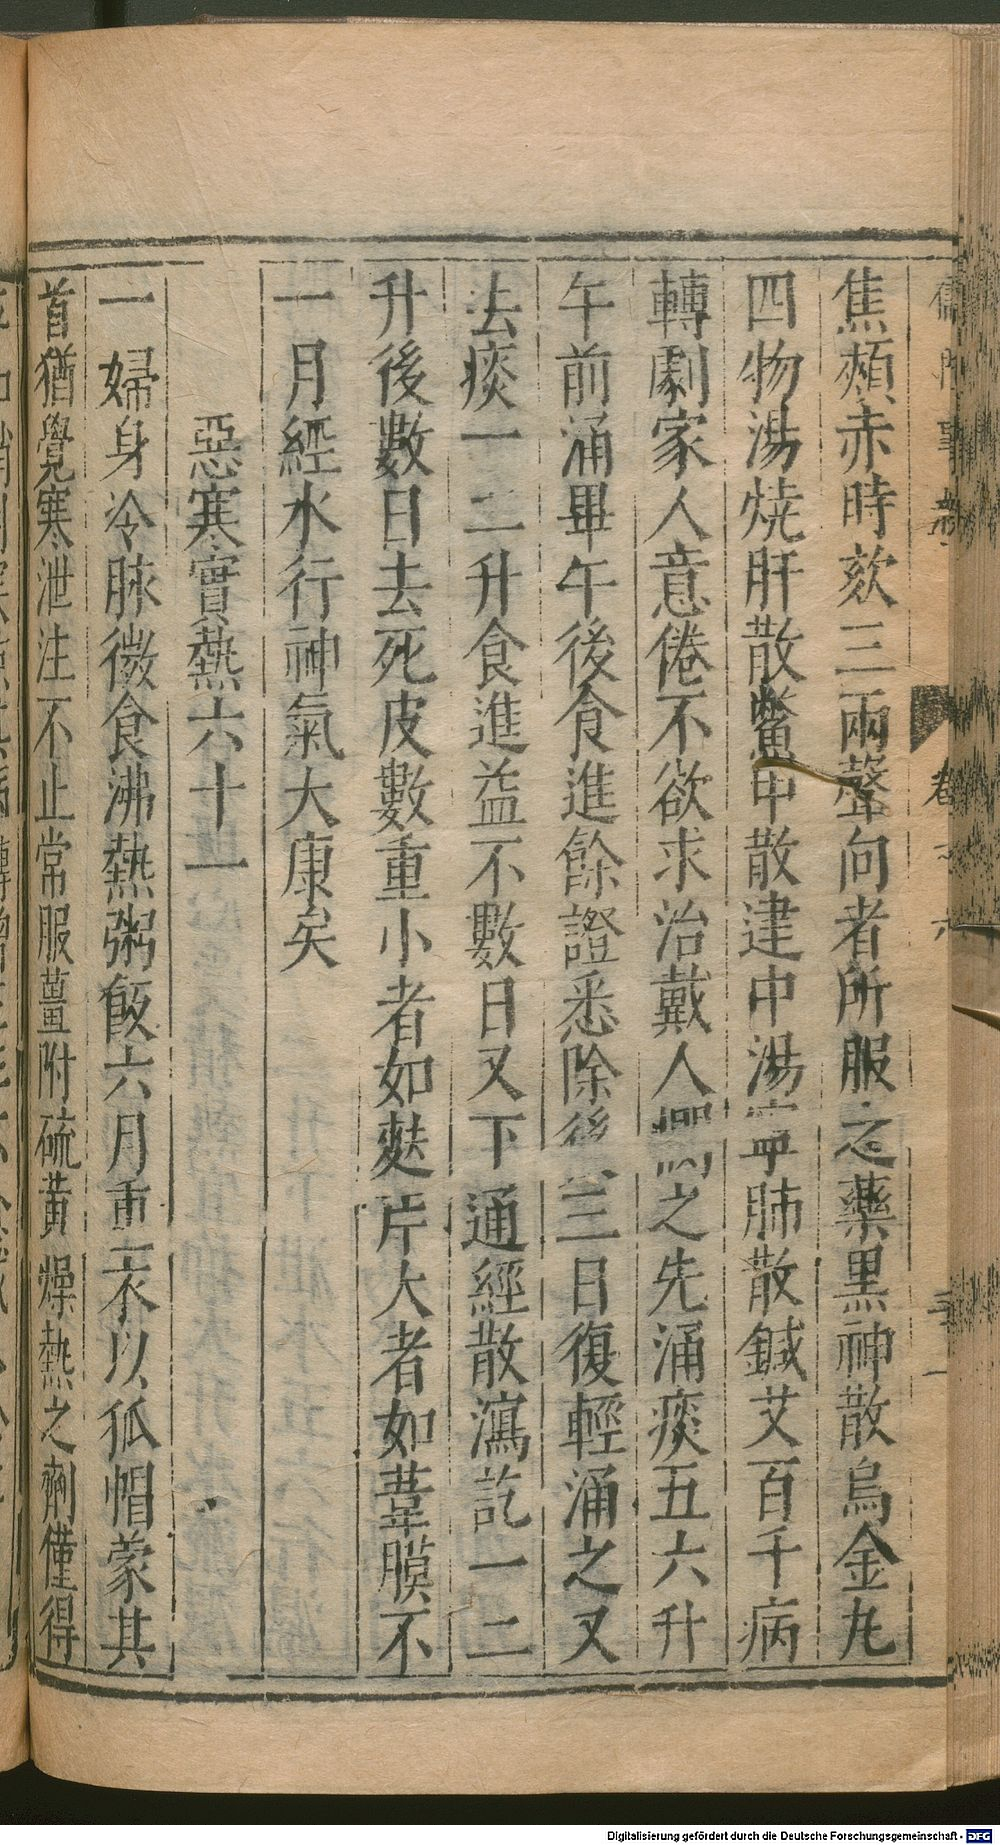 儒門事親 卷之六 三一
焦頰赤時欬三兩聲向者所服之藥黑神散烏金丸
四物湯燒肝散鱉甲散建中湯寧肺散鍼艾百千病
轉劇家人意倦不欲求治戴人憫之先涌痰五六升
午前涌畢午後食進餘證悉除後三日復輕涌之又
去痰一二升食進益不數日又下通經散瀉訖一二
升後數日去死皮數重小者如麩片大者如葦膜不
一月經水行神氣大康矣
惡寒實熱六十一
一婦身冷脉微食沸熱粥飯六月重衣以狐帽蒙其
首猶覺寒泄注不止常服薑附硫黃燥熱之劑僅得
Digitalisierung gefördert durch die Deutsche Forschungsgemeinschaft - DFG